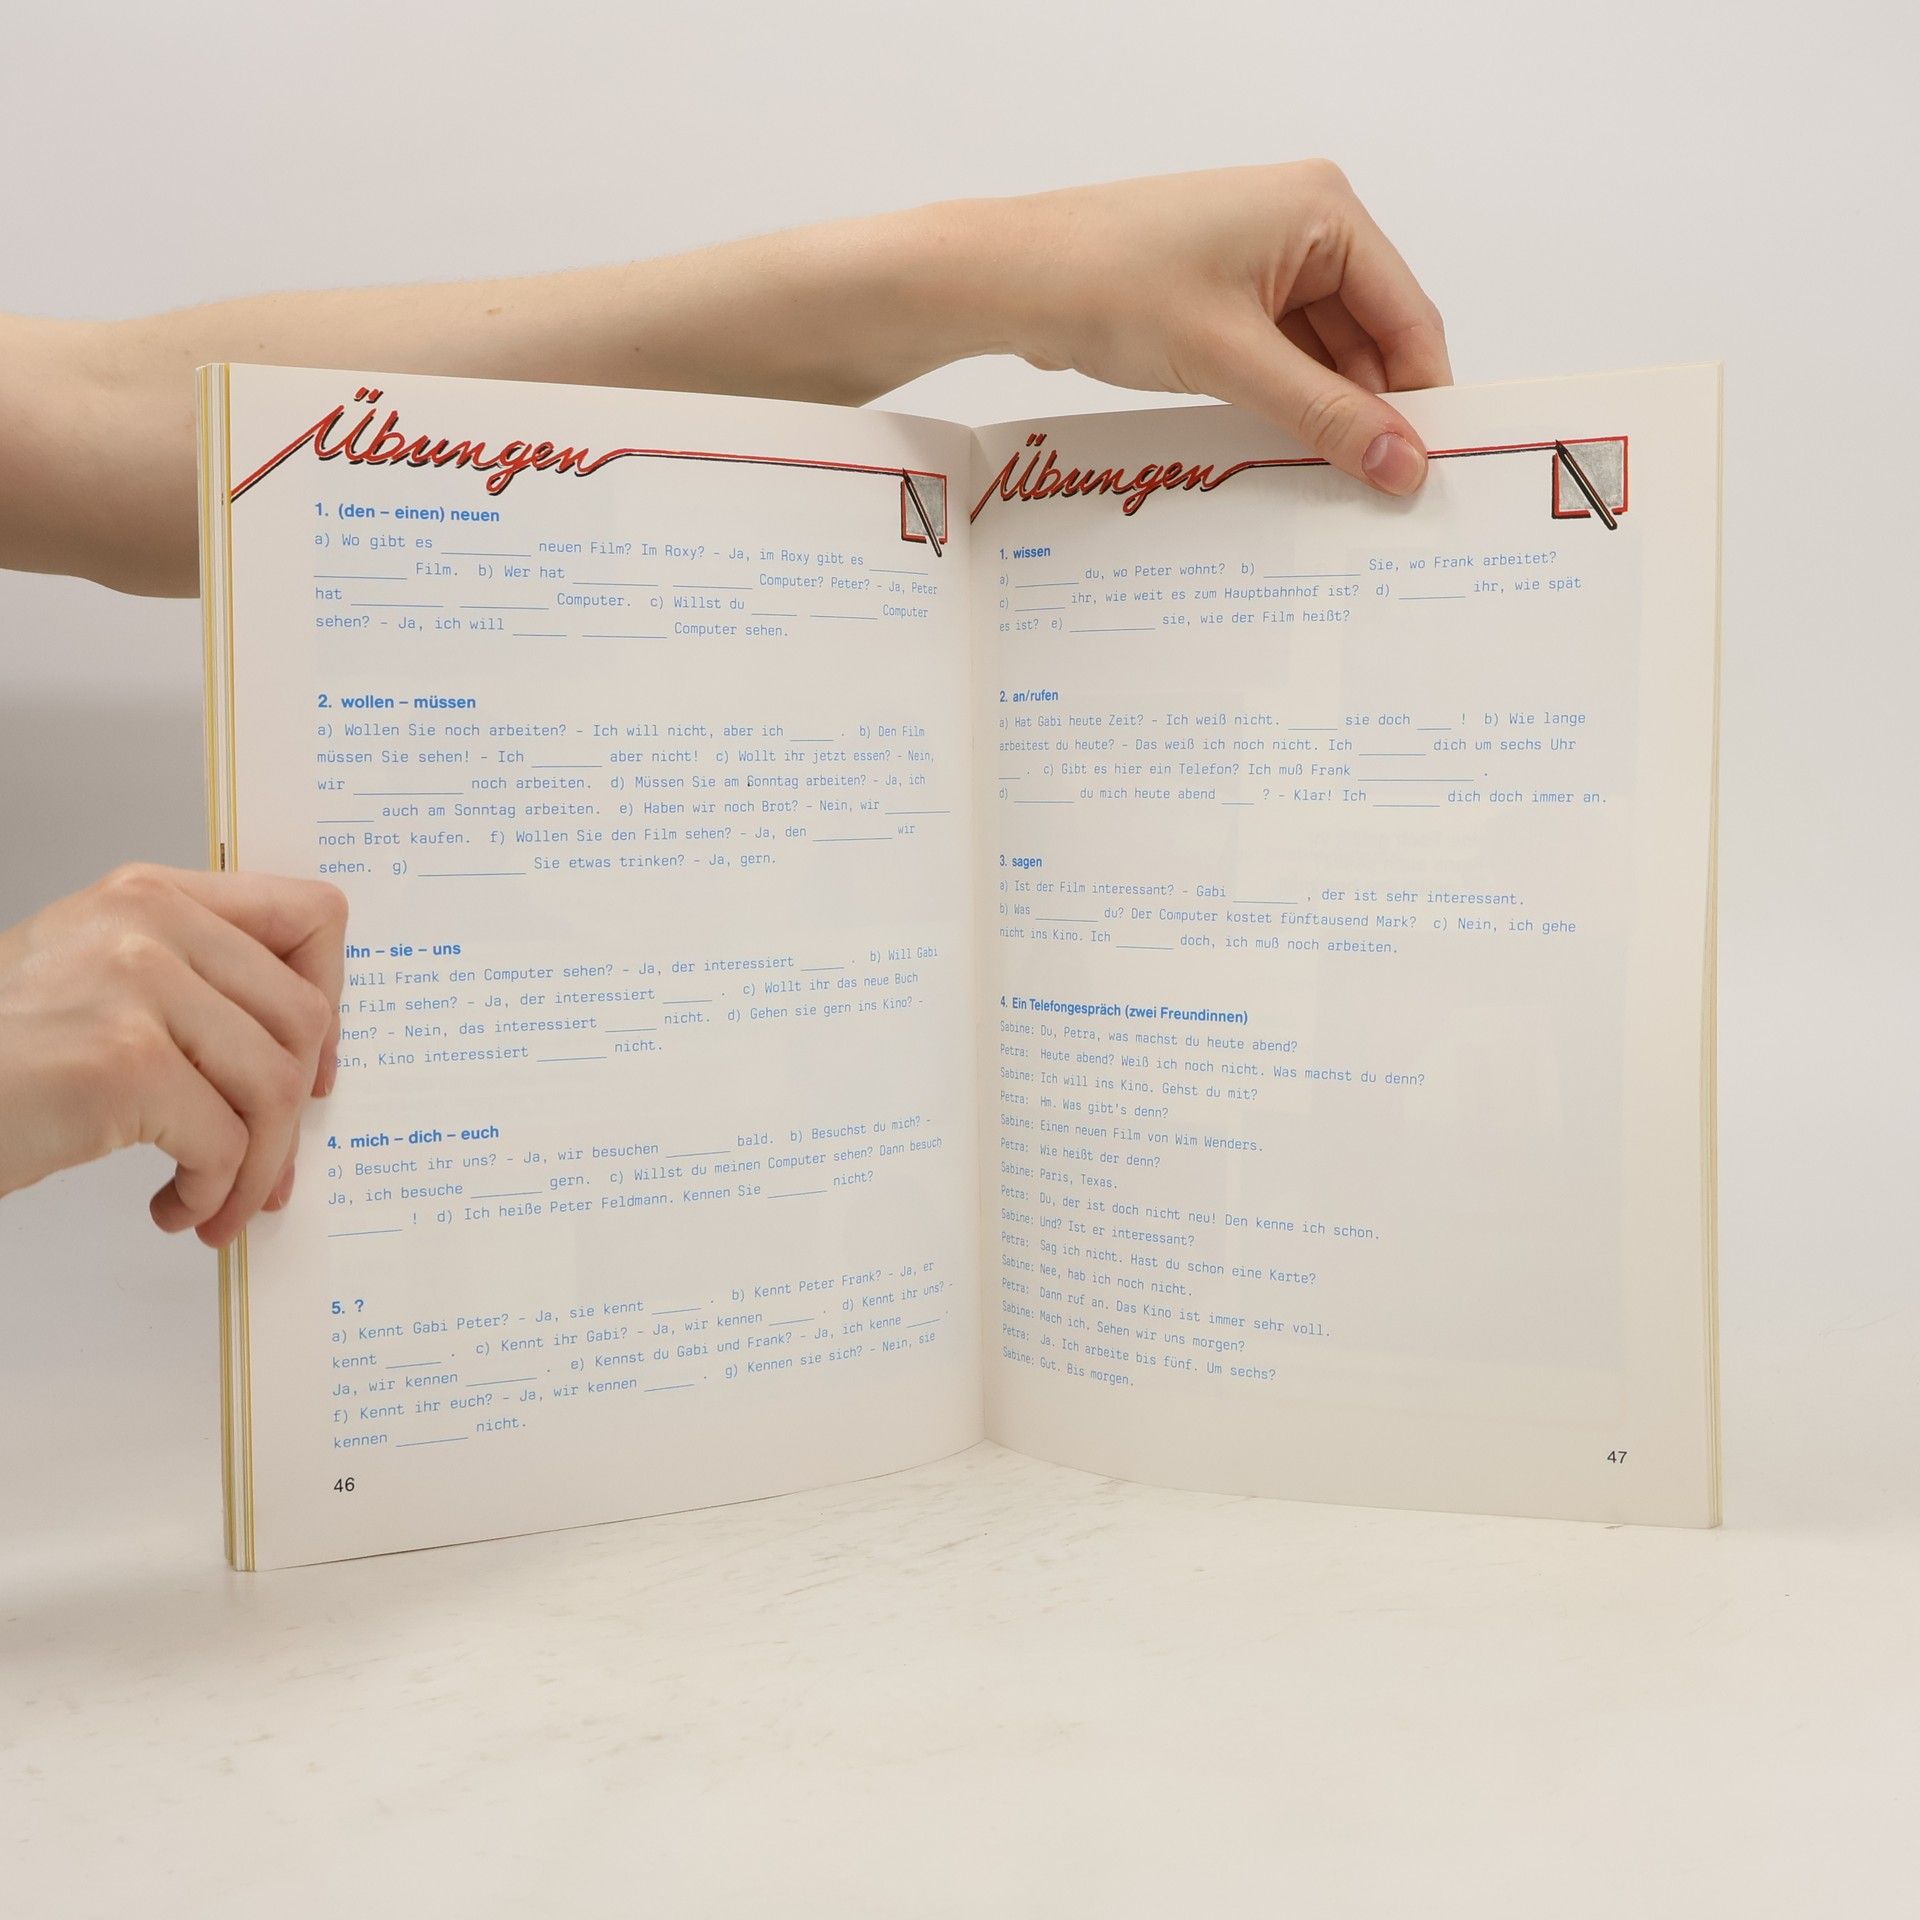 Übungen
1. (den – einen) neuen
a) Wo gibt es __________ neuen Film? Im Roxy? – Ja, im Roxy gibt es _______
__________ Film. b) Wer hat __________ __________ Computer? Peter? – Ja, Peter
hat __________ __________ Computer. c) Willst du _____ _______ Computer
sehen? – Ja, ich will ______ _________ Computer sehen.
2. wollen – müssen
a) Wollen Sie noch arbeiten? – Ich will nicht, aber ich _____ . b) Den Film
müssen Sie sehen! – Ich ________ aber nicht! c) Wollt ihr jetzt essen? – Nein,
wir ____________ noch arbeiten. d) Müssen Sie am Sonntag arbeiten? – Ja, ich
______ auch am Sonntag arbeiten. e) Haben wir noch Brot? – Nein, wir _______
noch Brot kaufen. f) Wollen Sie den Film sehen? – Ja, den _________ wir
sehen. g) ____________ Sie etwas trinken? – Ja, gern.
ihn – sie – uns
Will Frank den Computer sehen? – Ja, der interessiert _____ . b) Will Gabi
Film sehen? – Ja, der interessiert _____ . c) Wollt ihr das neue Buch
– Nein, das interessiert ______ nicht. d) Gehen sie gern ins Kino? –
Kino interessiert ________ nicht.
4. mich – dich – euch
a) Besucht ihr uns? – Ja, wir besuchen _______ bald. b) Besuchst du mich? –
Ja, ich besuche ________ gern. c) Willst du meinen Computer sehen? Dann besuch
________ ! d) Ich heiße Peter Feldmann. Kennen Sie _______ nicht?
5. ?
a) Kennt Gabi Peter? – Ja, sie kennt _____ . b) Kennt Peter Frank? – Ja, er
kennt ______ . c) Kennt ihr Gabi? – Ja, wir kennen _____ . d) Kennt ihr uns? –
Ja, wir kennen ________ . e) Kennst du Gabi und Frank? – Ja, ich kenne ____ .
f) Kennt ihr euch? – Ja, wir kennen _____ . g) Kennen sie sich? – Nein, sie
kennen ________ nicht.
46
Übungen
1. wissen
a) _______ du, wo Peter wohnt? b) ___________ Sie, wo Frank arbeitet?
c) ______ ihr, wie weit es zum Hauptbahnhof ist? d) _______ ihr, wie spät
es ist? e) _________ sie, wie der Film heißt?
2. an/rufen
a) Hat Gabi heute Zeit? – Ich weiß nicht. _____ sie doch ____ ! b) Wie lange
arbeitest du heute? – Das weiß ich noch nicht. Ich _______ dich um sechs Uhr
___ . c) Gibt es hier ein Telefon? Ich muß Frank _____________ .
d) _______ du mich heute abend ____ ? – Klar! Ich _______ dich doch immer an.
3. sagen
a) Ist der Film interessant? – Gabi _______ , der ist sehr interessant.
b) Was _______ du? Der Computer kostet fünftausend Mark? c) Nein, ich gehe
nicht ins Kino. Ich ______ doch, ich muß noch arbeiten.
4. Ein Telefongespräch (zwei Freundinnen)
Sabine: Du, Petra, was machst du heute abend?
Petra: Heute abend? Weiß ich noch nicht. Was machst du denn?
Sabine: Ich will ins Kino. Gehst du mit?
Petra: Hm. Was gibt's denn?
Sabine: Einen neuen Film von Wim Wenders.
Petra: Wie heißt der denn?
Sabine: Paris, Texas.
Petra: Du, der ist doch nicht neu! Den kenne ich schon.
Sabine: Und? Ist er interessant?
Petra: Sag ich nicht. Hast du schon eine Karte?
Sabine: Nee, hab ich noch nicht.
Petra: Dann ruf an. Das Kino ist immer sehr voll.
Sabine: Mach ich. Sehen wir uns morgen?
Petra: Ja. Ich arbeite bis fünf. Um sechs?
Sabine: Gut. Bis morgen.
47